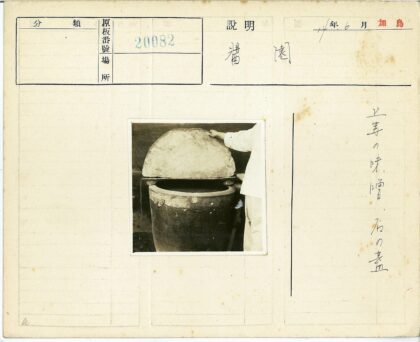 分類
原板番號
場所
20082
説明
年 月
加島
醬園
上等の味噌、石の蓋